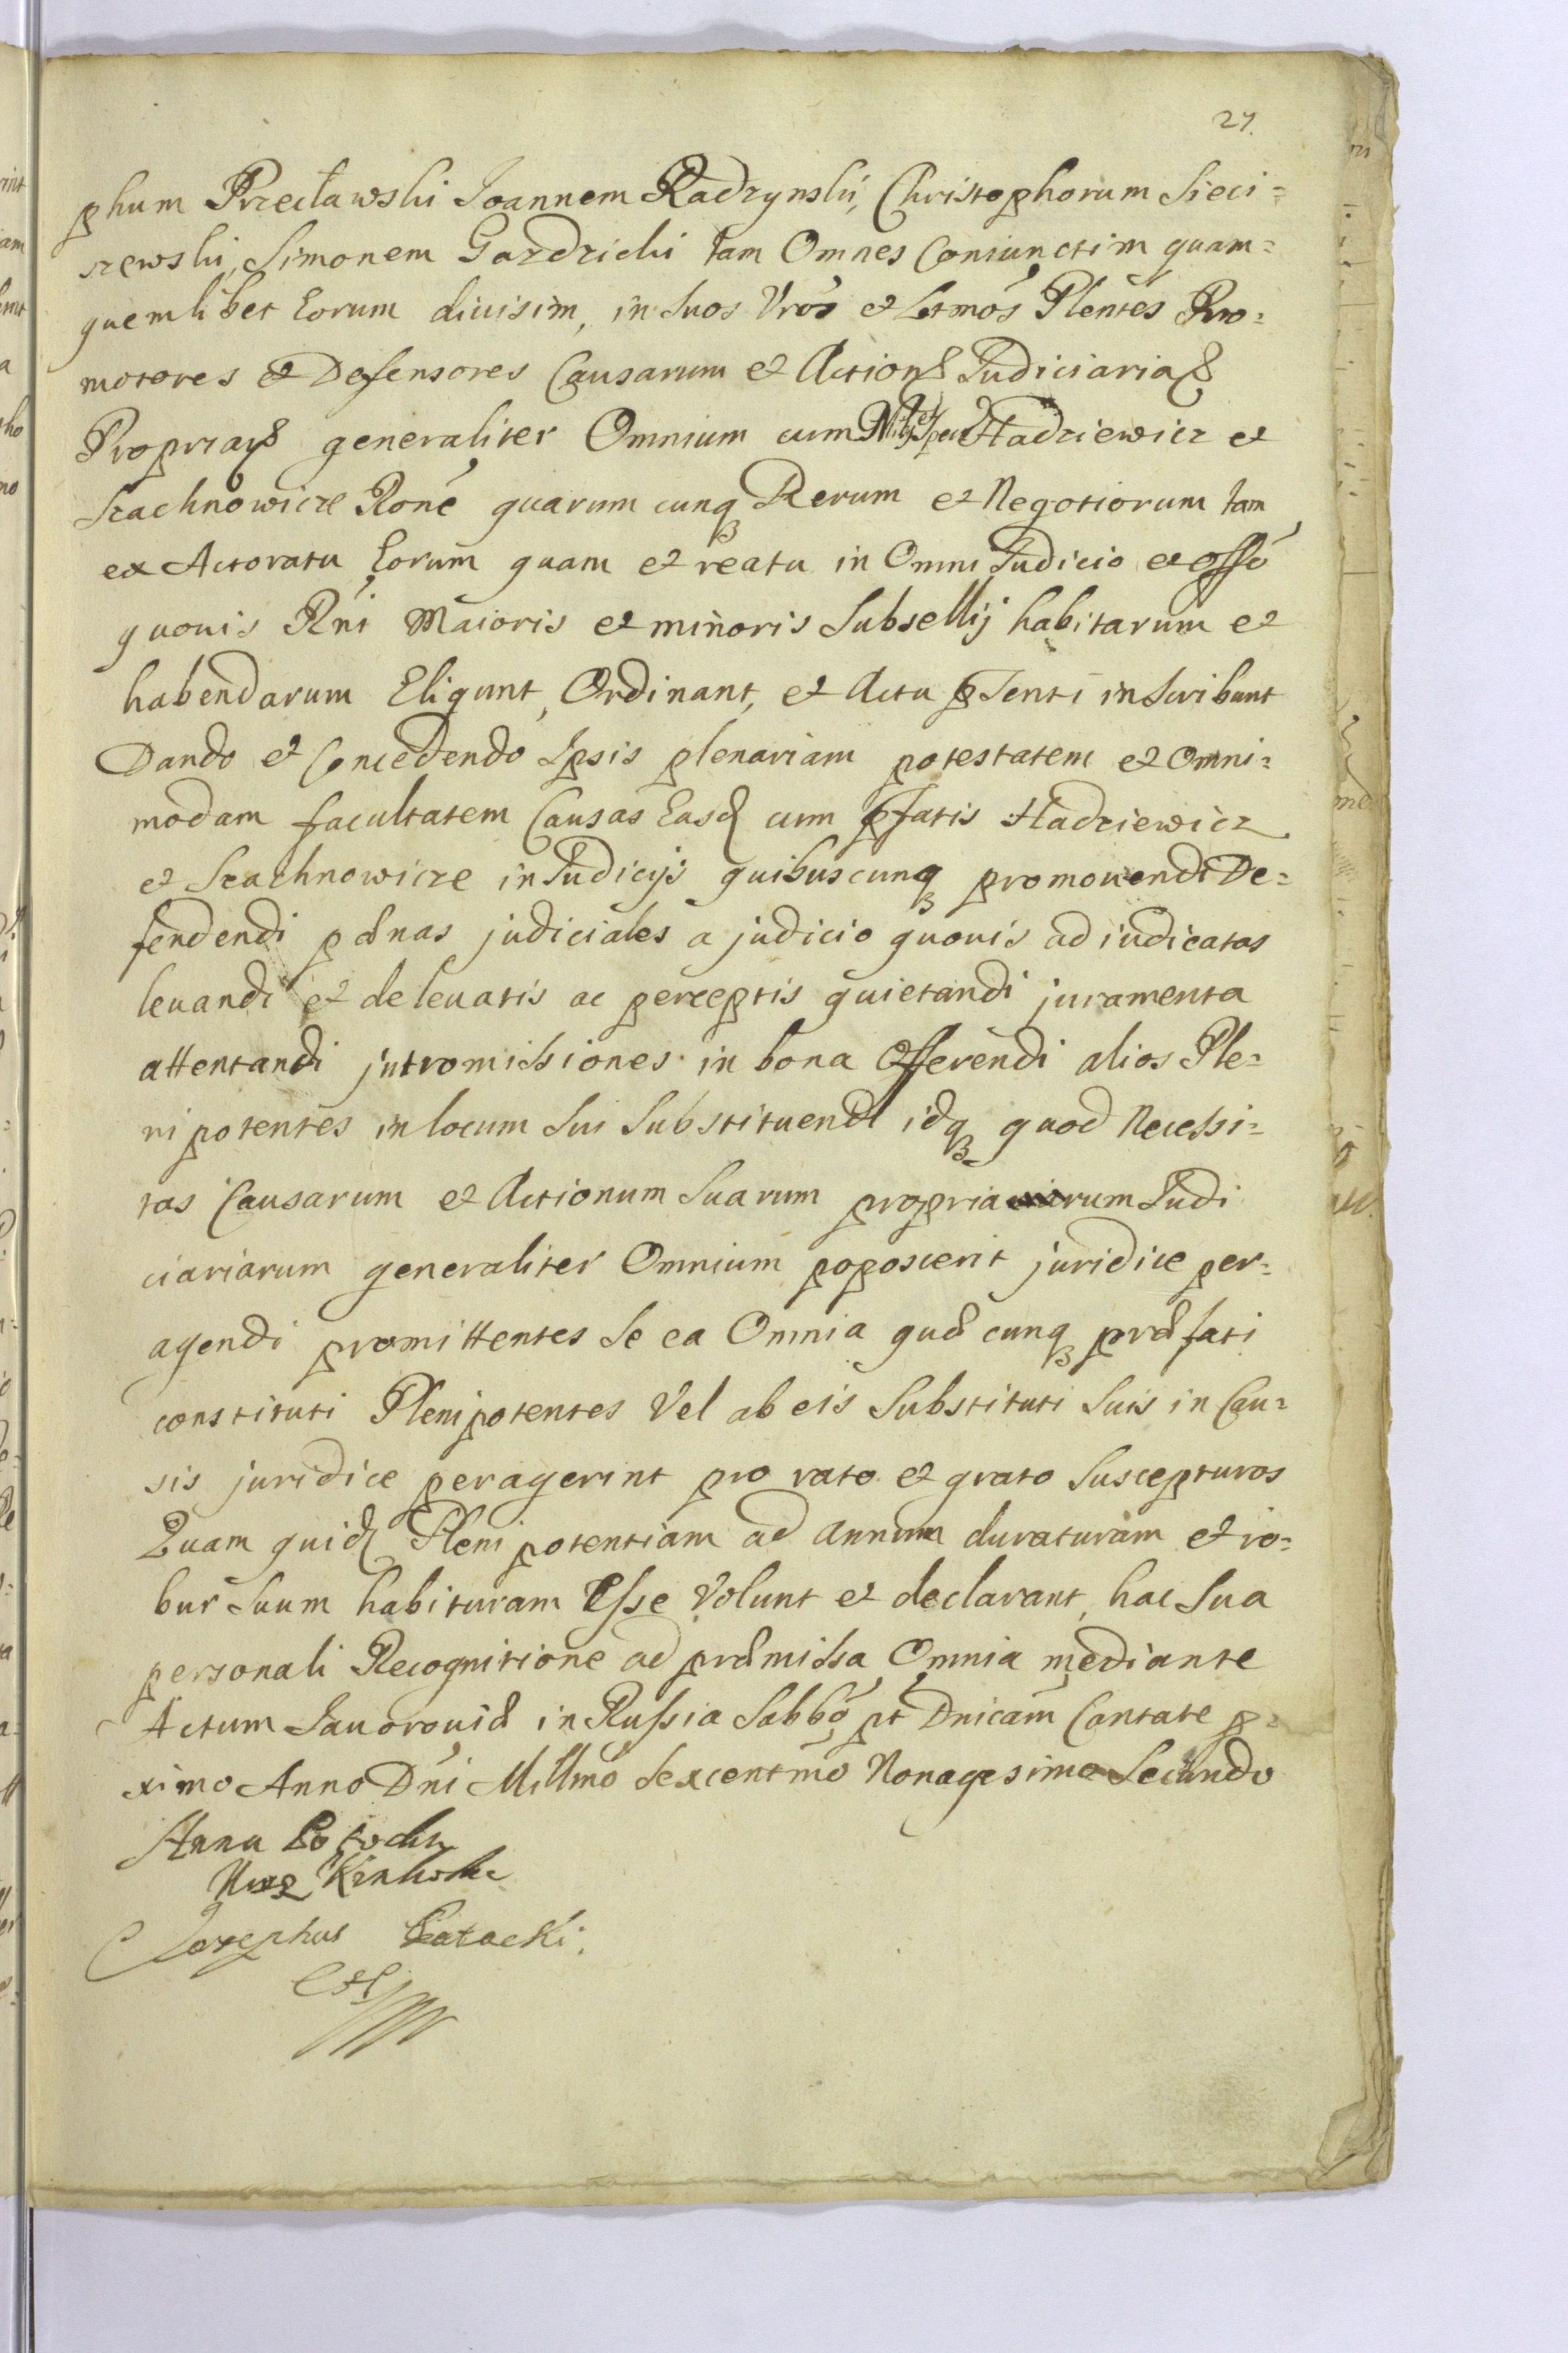 27.
phum Przecławski Joannem Radzynski, Christophorum Sieci=
szewski, Simonem Gozdzicki tam Omnes Coniunctim quam=
quemlibet Eorum diuisim, in Suos Vros et Ltmos Plentes Pro=
motores et Defensores Causarum et Action Judiciaria
Propria generaliter Omnium cum Hadziewicz et
Szachnowicze Rone quarum cunq Rerum et Negotiorum tam
ex Actoratu Eorum quam et reatu in Omni Judicio et offo
quouis Rni Maioris et minoris Subsellij habitarum et
habendarum Eligunt, Ordinant, et Actu pSenti inscribunt
Dando et Concedendo Ipsis plenariam potestatem et Omni=
modam facultatem Causas Easd cum pfatis Hadziewicz
et Szachnowicze in Judicijs quibuscunq promouendi De=
fendendi pænas judiciales a judicio quouis adiudicatas
leuandi et de leuatis ac perceptis quietandi juramenta
attentandi jntromissiones in bona Offerendi alios Ple=
nipotentes in locum Sui Substituendi idq quod Necessi=
tas Causarum et Actionum Suarum propriarum Judi
ciariarum generaliter Omnium poposcerit juridice per=
agendi promittentes Se ea Omnia quæ cunq præfati
constituti Plenipotentes Vel ab eis Substituti Suis in Cau=
sis juridice peragerint pro rato et grato Suscepturos
Quam quid Plenipotentiam ad annum duraturam et ro=
bur Suum habituram Esse Volunt et declarant, hac Sua
personali Recognitione ad præmissa Omnia mediante
Actum Jauorouiæ in Russia Sabbo pt Dnicam Cantate p=
ximo Anno Dni Millmo Sexcentmo Nonagesimo Secundo
Anna Potocka

Josephus Potocki